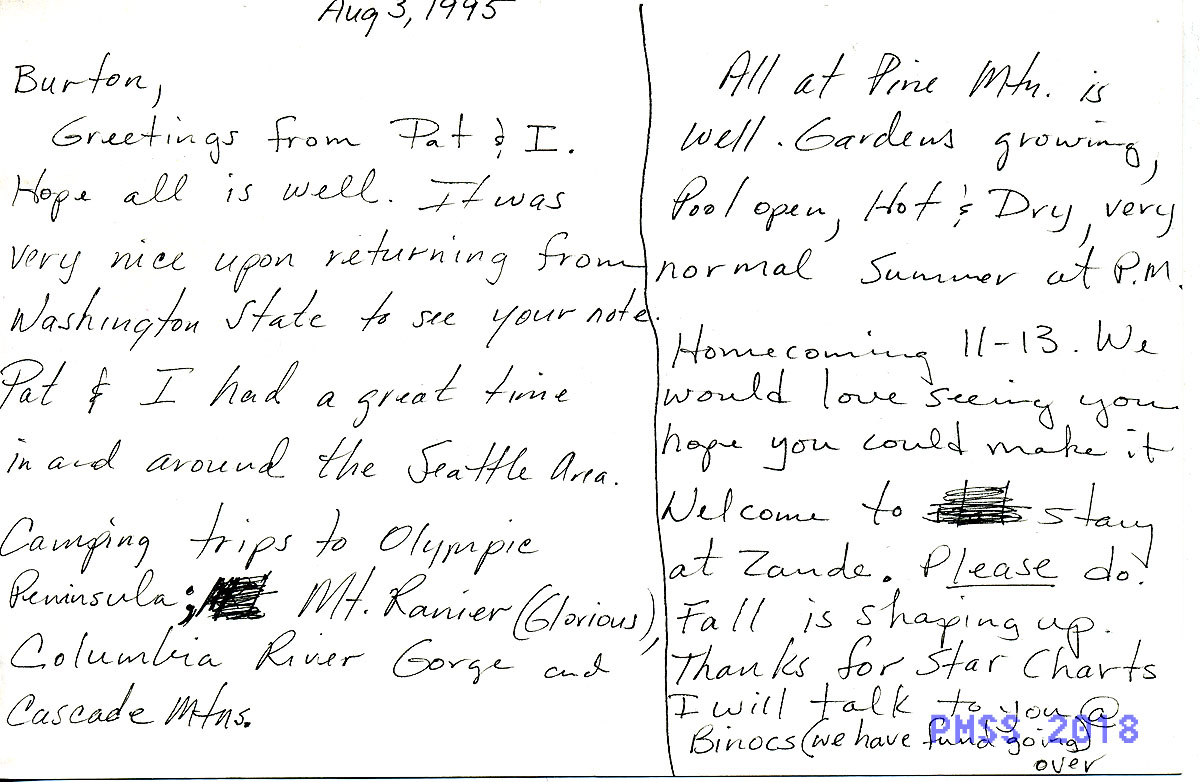 Aug 3, 1995
Burton,
Greetings from Pat & I.
Hope all is well. It was
very nice upon returning from
Washington State to see your note.
Pat & I had a great time
in and around the Seattle Area.
Camping trips to Olympic
Peninsula; Mt. Ranier (Glorious),
Columbia River Gorge and
Cascade Mtns.
All at Pine Mtn. is
well. Gardens growing,
Pool open, Hot & Dry, very
normal Summer at P.M.
Homecoming 11-13. We
would love seeing you
hope you could make it
Welcome to stay
at Zande. Please do.
Fall is shaping up.
Thanks for Star Charts
I will talk to you @
Binocs (we have fund going)
over
PMSS 2018